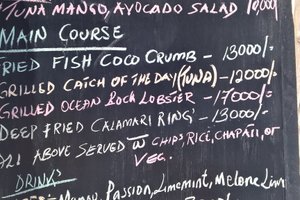 TUNA MANGO, AVOCADO SALAD 10,000
MAIN COURSE
FRIED FISH COCO CRUMB - 13000/-
GRILLED CATCH OF THE DAY (TUNA) - 12000/-
GRILLED OCEAN ROCK LOBSTER - 17000/-
DEEP FRIED CALAMARI RING' - 13000/-
ALL ABOVE SERVED W CHIPS, RICE, CHAPATI, OR
VEG.
DRINKS
Mango, Passion, Limemint, Melone Lim